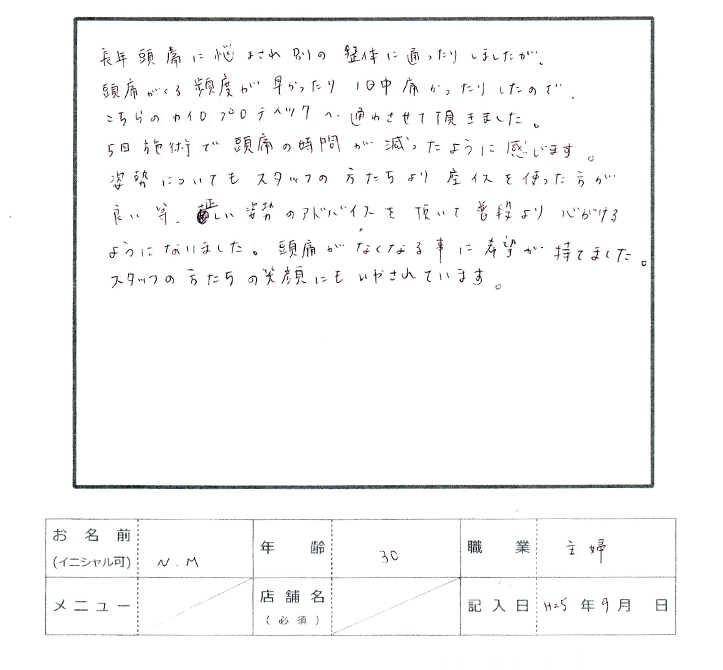 長年頭痛に悩まされ別の整体に通ったりしましたが、
頭痛がくる頻度が早かったり1日中痛かったりしたので、
こちらのカイロプロティックへ通わさせて頂きました。
5回施術で頭痛の時間が減ったように感じます。
姿勢についてもスタッフの方たちより座イスを使った方が
良い等、正しい姿勢のアドバイスを頂いて普段より心がける
ようになりました。頭痛がなくなる事に希望が持てました。
スタッフの方たちの笑顔にもいやされています。
お名前 (イニシャル可) N.M 年齢 30 職業 主婦
メニュー 店舗名 (必須) 記入日 H25年9月 日